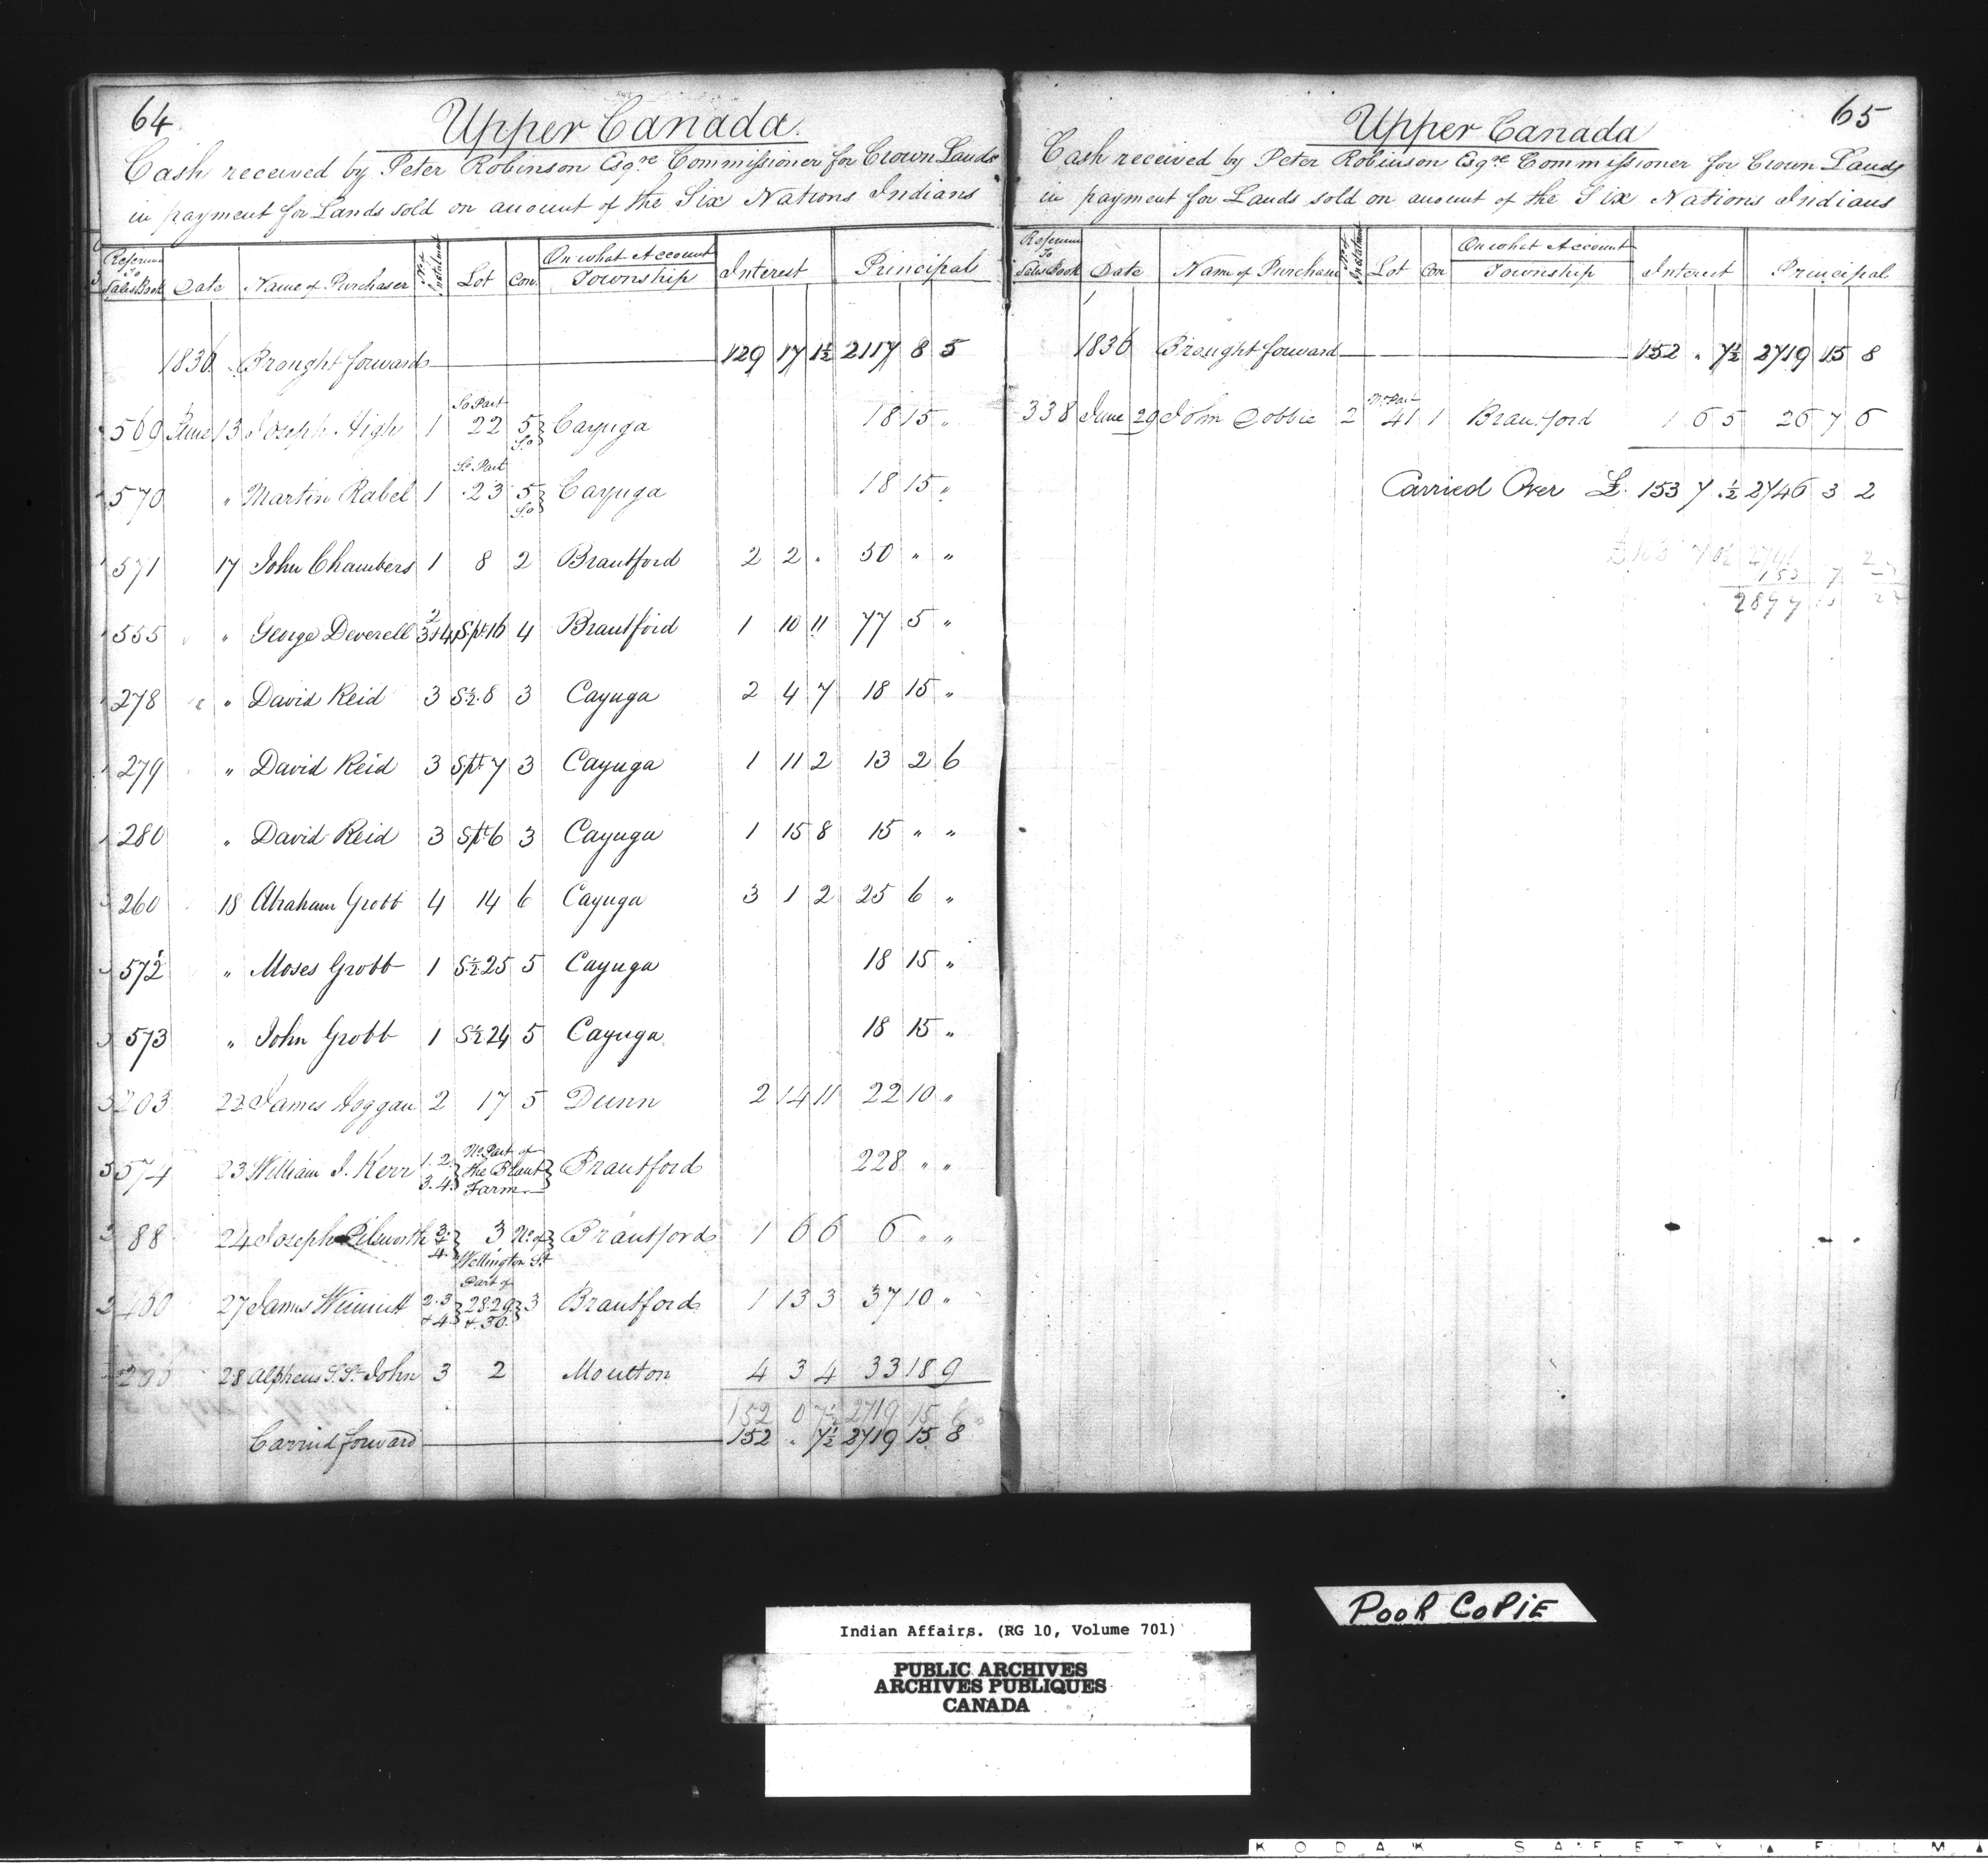 64
Upper Canada.
Cash received by Peter Robinson Esqre Commissioner for Crown Lands
in payment for Lands sold on account of the Six Nations Indians
Reference To Sales Book | Date | Name of Purchaser | No of Instalment | Lot | Con. | On what Account Township | Interest | Principal
1836 Brought forward 129 17 1½ 2117 8 5
569 June 13 Joseph High 1 So Part 22 5 So } Cayuga 18 15 "
570 " Martin Rabel 1 So Part 23 5 So } Cayuga 18 15 "
571 17 John Chambers 1 8 2 Brantford 2 2 " 50 " "
555 " George Deverell 2 3 & 4 S pt 16 4 Brantford 1 10 11 77 5 "
278 " David Reid 3 S ½ 8 3 Cayuga 2 4 7 18 15 "
279 " David Reid 3 S pt 7 3 Cayuga 1 11 2 13 2 6
280 " David Reid 3 S pt 6 3 Cayuga 1 15 8 15 " "
260 18 Abraham Grobb 4 14 6 Cayuga 3 1 2 25 6 "
572 " Moses Grobb 1 S ½ 25 5 Cayuga 18 15 "
573 " John Grobb 1 S ½ 24 5 Cayuga 18 15 "
203 22 James Hoggan 2 17 5 Dunn 2 14 11 22 10 "
574 23 William J. Kerr 1. 2. 3. 4 } No Part of the Brant Farm } Brantford 228 " "
88 24 Joseph 3 & 4 } 3 No of Wellington St } Brantford 1 6 6 6 " "
27 James 2. 3 & 4 } Part of 28. 29 & 30. } 3 Brantford 1 13 3 37 10 "
200 28 Alpheus S. St John 3 2 Moulton 4 3 4 33 18 9
152 0 7½ 2719 15 8
Carried forward 152 " 7½ 2719 15 8
65
Upper Canada
Cash received by Peter Robinson Esqre Commissioner for Crown Lands
in payment for Lands sold on account of the Six Nations Indians
Reference To Sales Book | Date | Name of Purchaser | No of Instalment | Lot | Con | On what Account Township | Interest | Principal
1836 Brought forward 152 " 7½ 2719 15 8
338 June 29 John Dobbie 2 No Part 41 1 Brantford 1 6 5 26 7 6
Carried Over £ 153 7 ½ 2746 3 2
153 7
Indian Affairs. (RG 10, Volume 701)
PUBLIC ARCHIVES
ARCHIVES PUBLIQUES
CANADA
POOR COPIE
KODAK SAFETY FILM